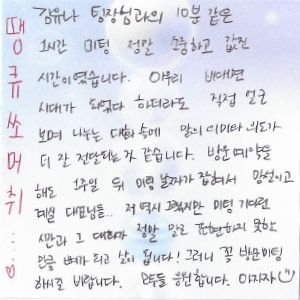 땡큐쏘머취
김유나 팀장님과의 10분 같은
1시간 미팅 정말 소중하고 값진
시간이였습니다. 아무리 비대면
시대가 되었다 하더라도 직접 얼굴
보며 나누는 대화 속에 말의 의미와 의도가
더 잘 전달되는것 같습니다. 방문예약을
해도 1주일 뒤 미팅 날짜가 잡혀서 망설이고
계실 대표님들.. 저 역시 그랬지만 미팅 기다린
시간과 그 대화가 정말 말로 표현하지 못할
만큼 뼈가 되고 살이 됩니다! 그러니 꼭 방문미팅
하시로 바랍니다. 모두들 응원합니다. 아자자